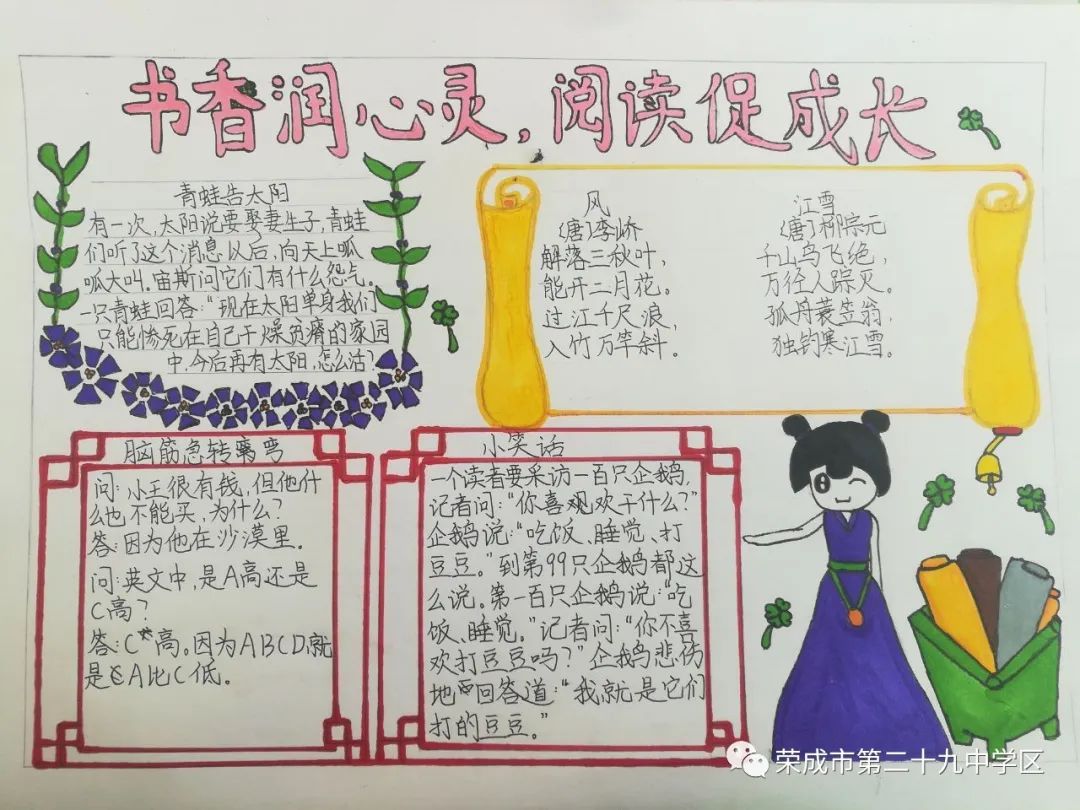 书香润心灵,阅读促成长
青蛙告太阳
有一次,太阳说要娶妻生子,青蛙
们听了这个消息以后,向天上呱
呱大叫。宙斯问它们有什么怨气。
一只青蛙回答:“现在太阳单身我们
只能惨死在自己干燥贫瘠的家园
中,今后再有太阳,怎么活?
风
(唐)李峤
解落三秋叶,
能开二月花。
过江千尺浪,
入竹万竿斜。
江雪
(唐)柳宗元
千山鸟飞绝,
万径人踪灭。
孤舟蓑笠翁,
独钓寒江雪。
脑筋急转弯
问:小王很有钱,但他什
么也不能买,为什么?
答:因为他在沙漠里。
问:英文中,是A高还是
C高?
答:C高。因为ABCD,就
是A比C低。
小笑话
一个读者要采访一百只企鹅,
记者问:“你喜观欢干什么?”
企鹅说:“吃饭、睡觉、打
豆豆。”到第99只企鹅都这
么说。第一百只企鹅说:“吃
饭、睡觉。”记者问:“你不喜
欢打豆豆吗?”企鹅悲伤
地回答道:“我就是它们
打的豆豆。”
荣成市第二十九中学区